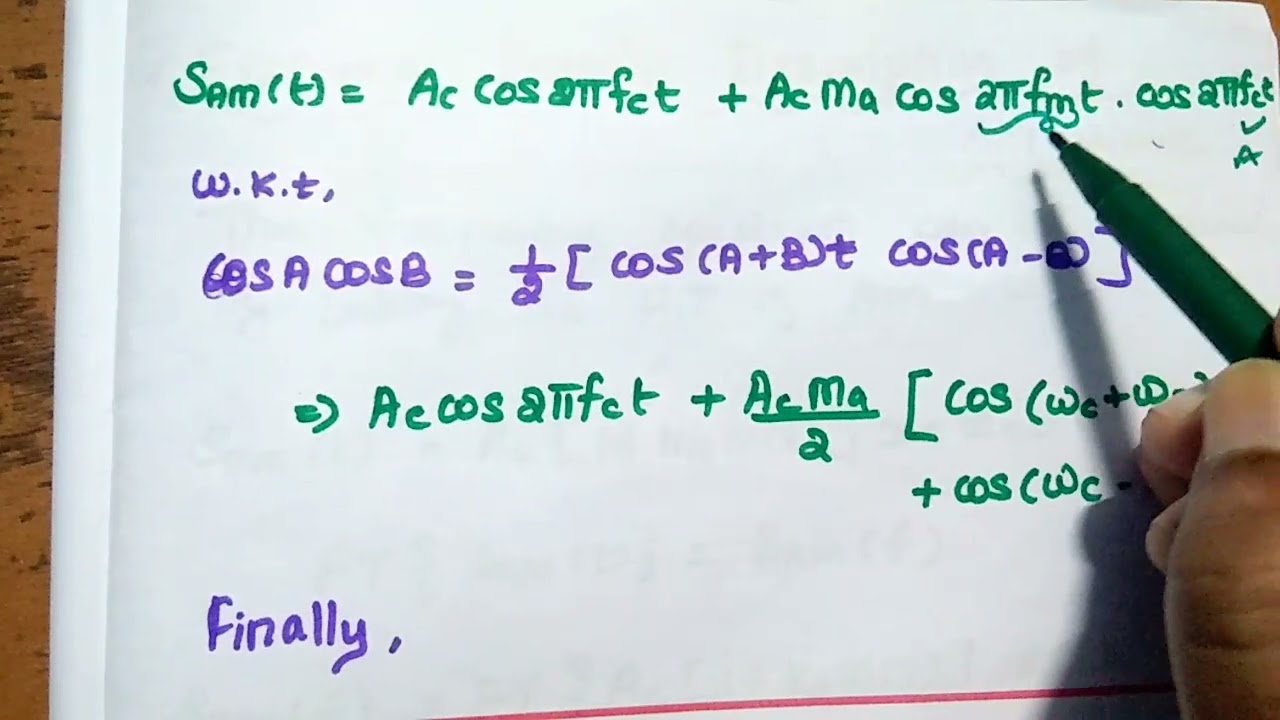 SAM(t) = Ac cos 2πfct + Ac Ma cos 2πfmt . cos 2πfct
A
W.K.t,
CosA cosB = 1/2 [ cos (A+B)t cos(A-B) ]
=> Ac cos 2πfct + Ac Ma / 2 [ cos (ωc+ω
+ cos (ωc -
Finally,